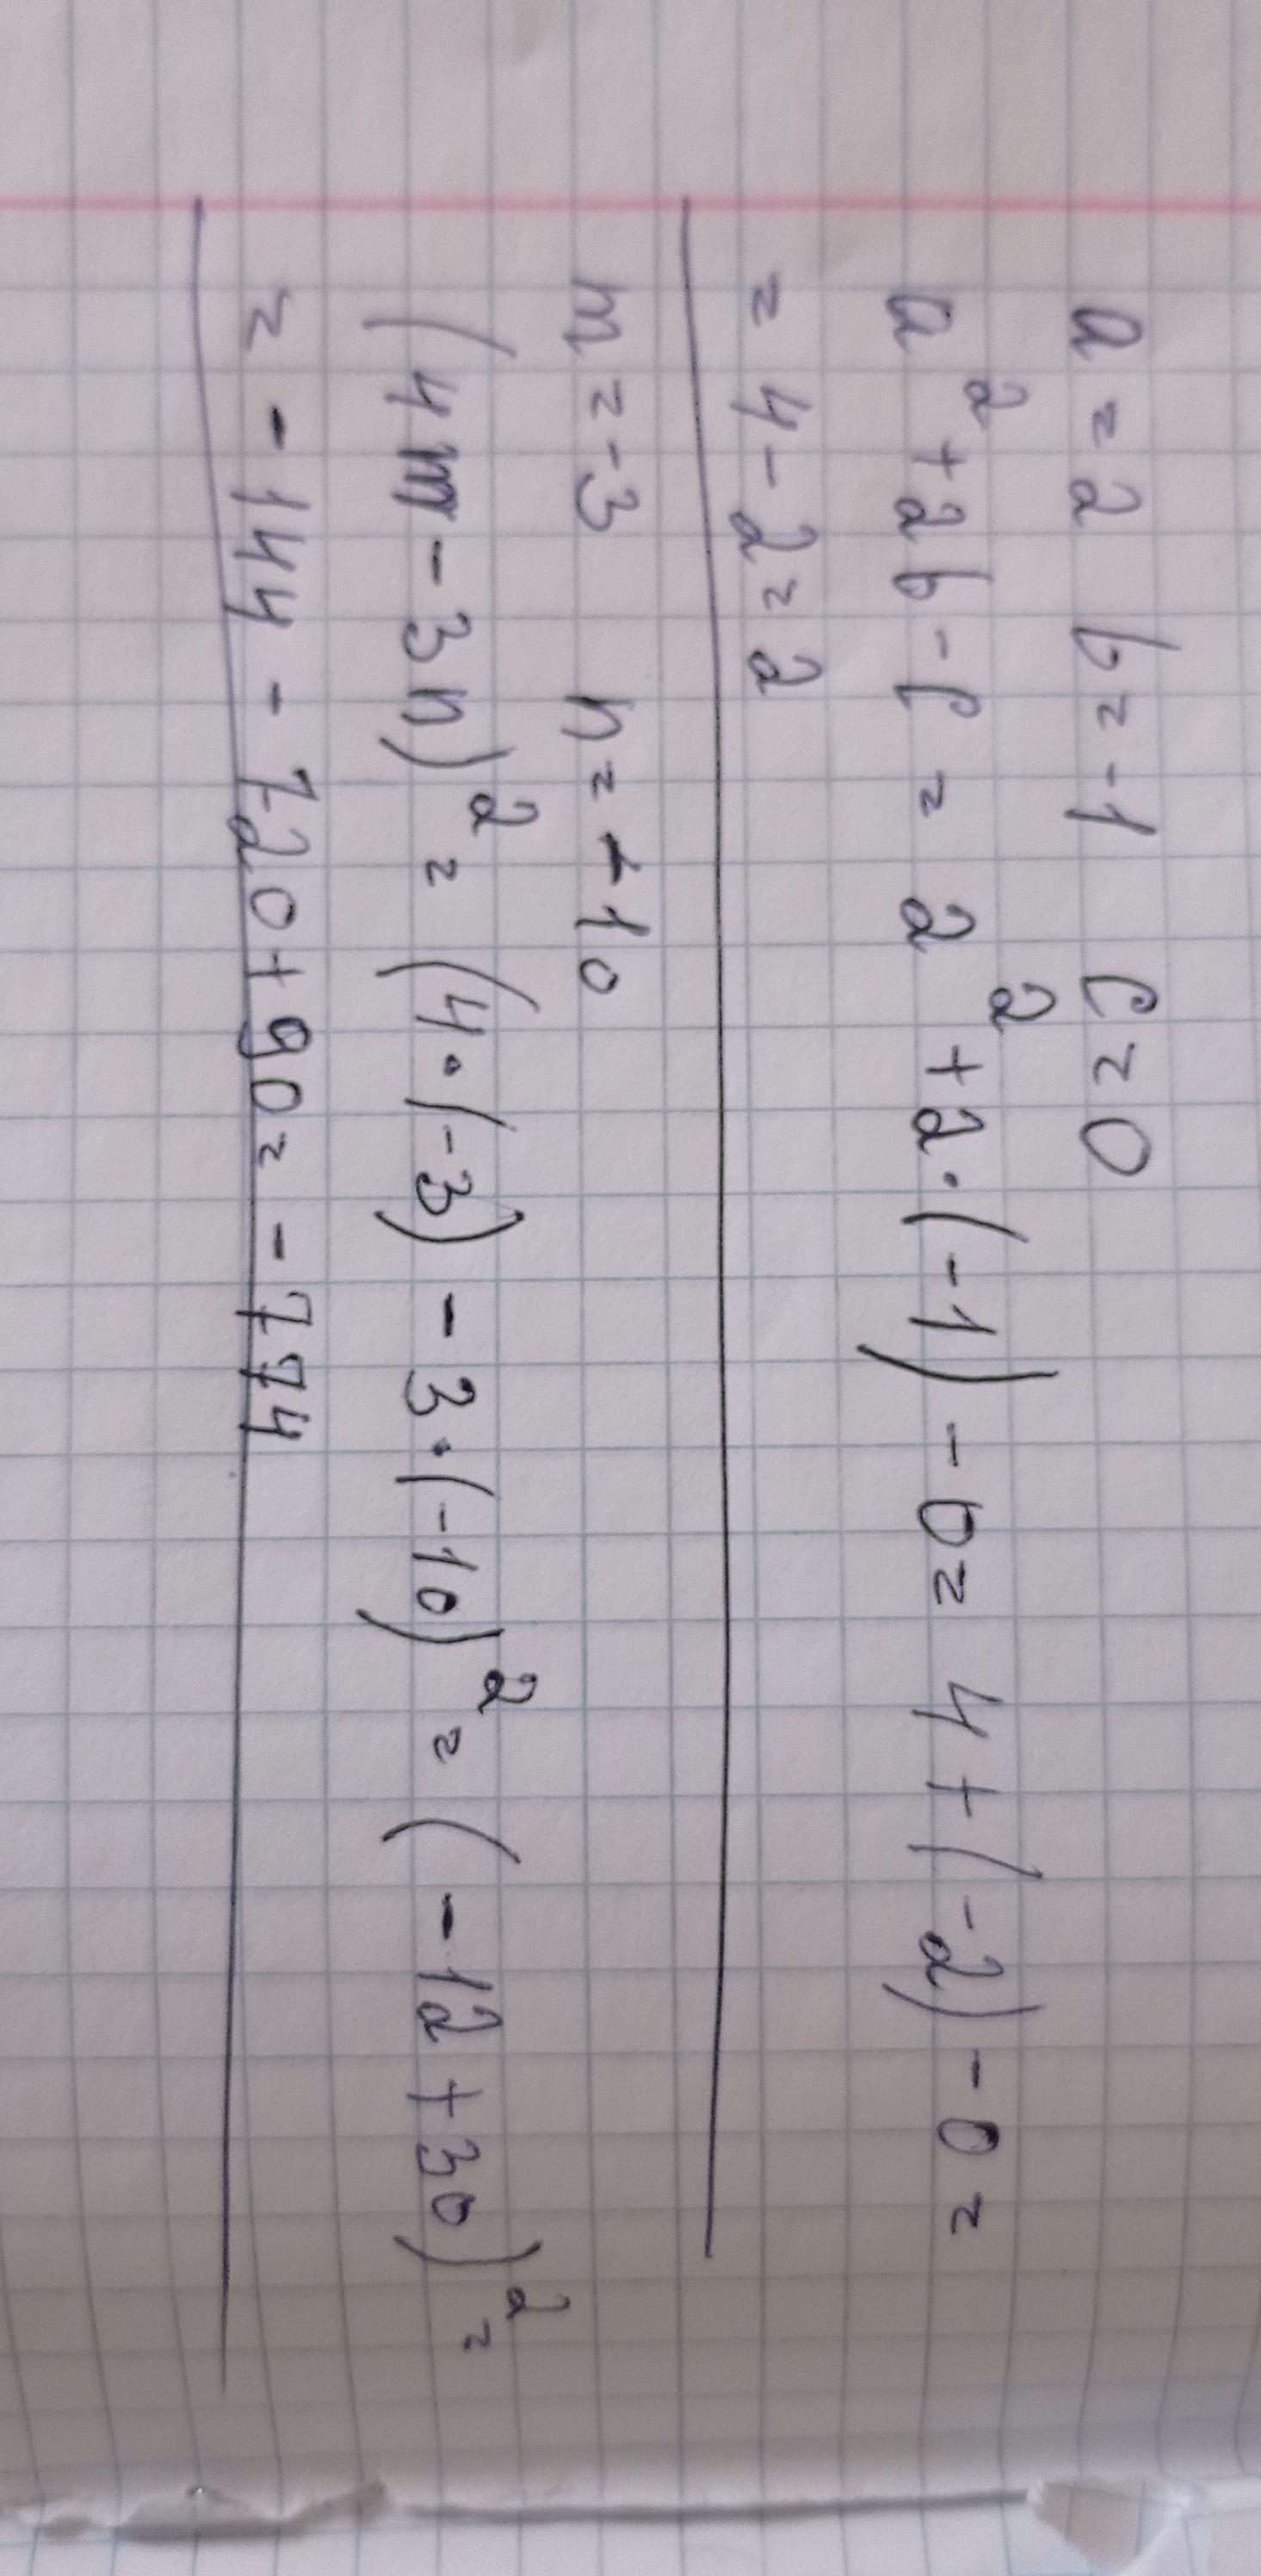 a = 2 b = -1 c = 0
a² + 2b - c = 2² + 2·(-1) - 0 = 4 + (-2) - 0 =
= 4 - 2 = 2
m = -3 n = -10
(4m - 3n)² = (4·(-3) - 3·(-10)² = (-12 + 30)² =
= -144 - 720 + 90 = -774